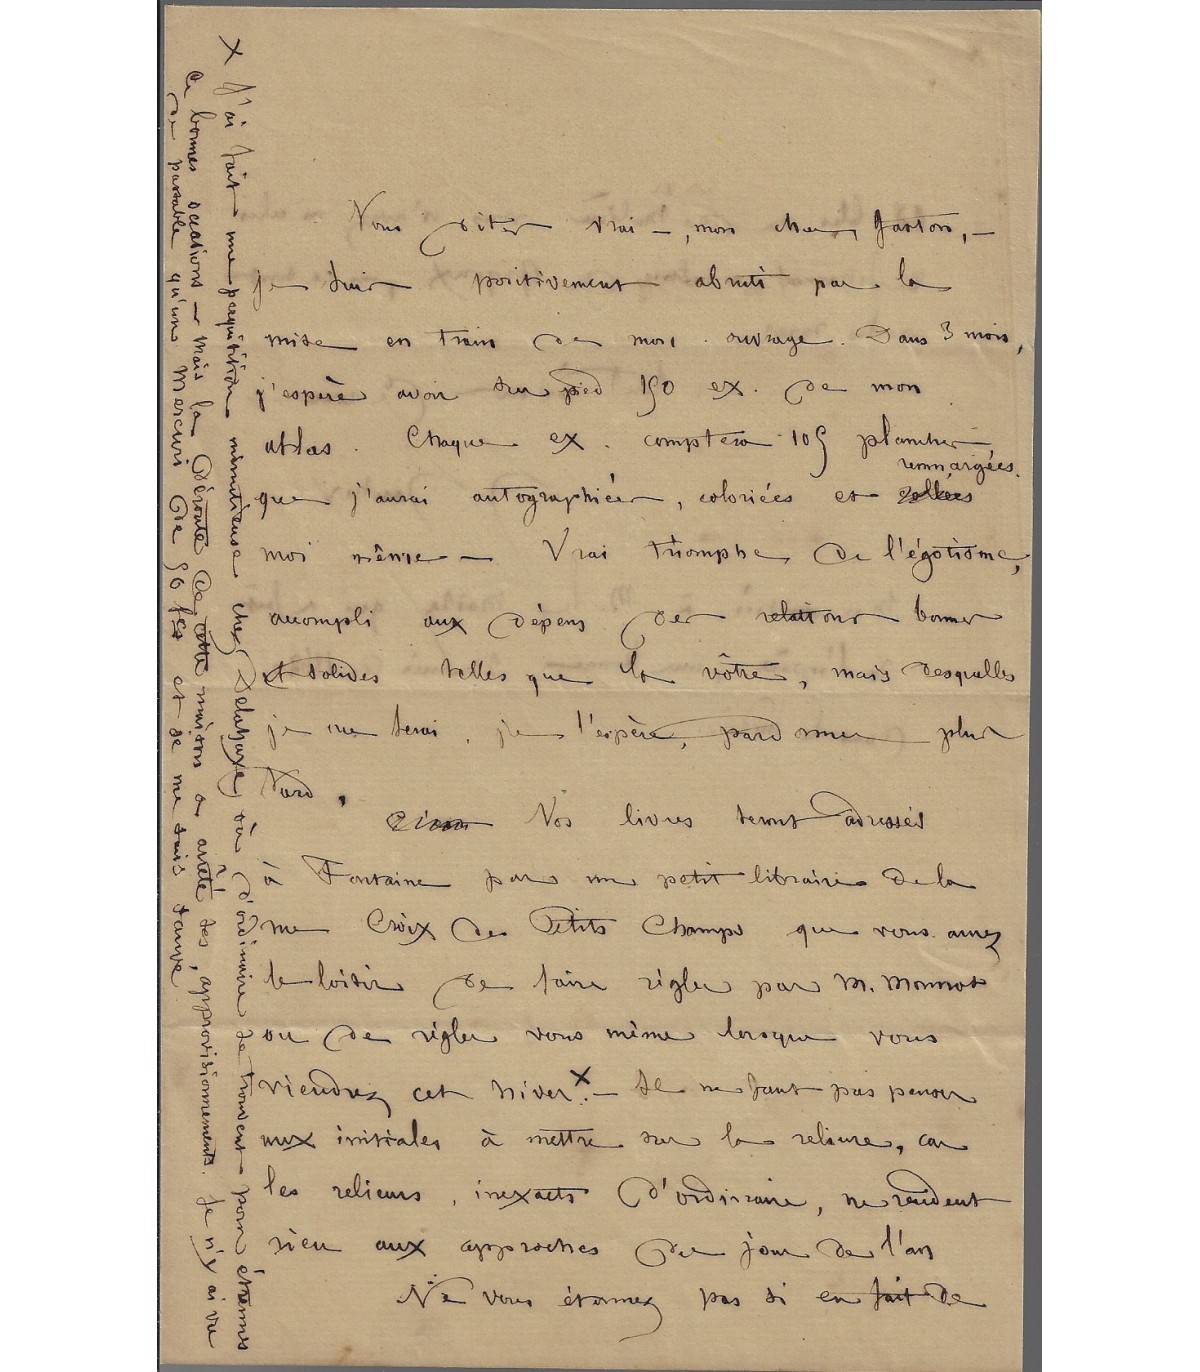 Vous dites vrai —, mon cher Gaston, —
je suis positivement abruti par la
mise en train de mon ouvrage. Dans 3 mois,
j'espère avoir sur pied 150 ex. de mon
atlas. Chaque ex. comptera 105 planches
remmargées
que j'aurai autographiées, coloriées et collées
moi même — Vrai triomphe de l'égotisme,
accompli aux dépens des relations bonnes
et solides telles que la vôtre, mais desquelles
je me ferai, je l'espère, pardonner plus
tard.
Vos livres seront adressés
à Fontaine par un petit libraire de la
rue Croix des Petits Champs que vous aurez
le loisir de faire régler par M. Monnot
ou de régler vous même lorsque vous
viendrez cet hiver. X — Il ne faut pas penser
aux initiales à mettre sur la reliure, car
les relieurs, inexacts d'ordinaire, ne rendent
rien aux approches du jour de l'an
Ne vous étonnez pas si en fait de
X J'ai fait une perquisition minutieuse chez Delahaye où d'ordinaire se trouvent pour étrennes
de bonnes occasions — mais la déroute de cette maison a arrêté ses approvisionnements. Je n'y ai vu
de passable qu'un Mercuri de 50 fcs et je me suis sauvé